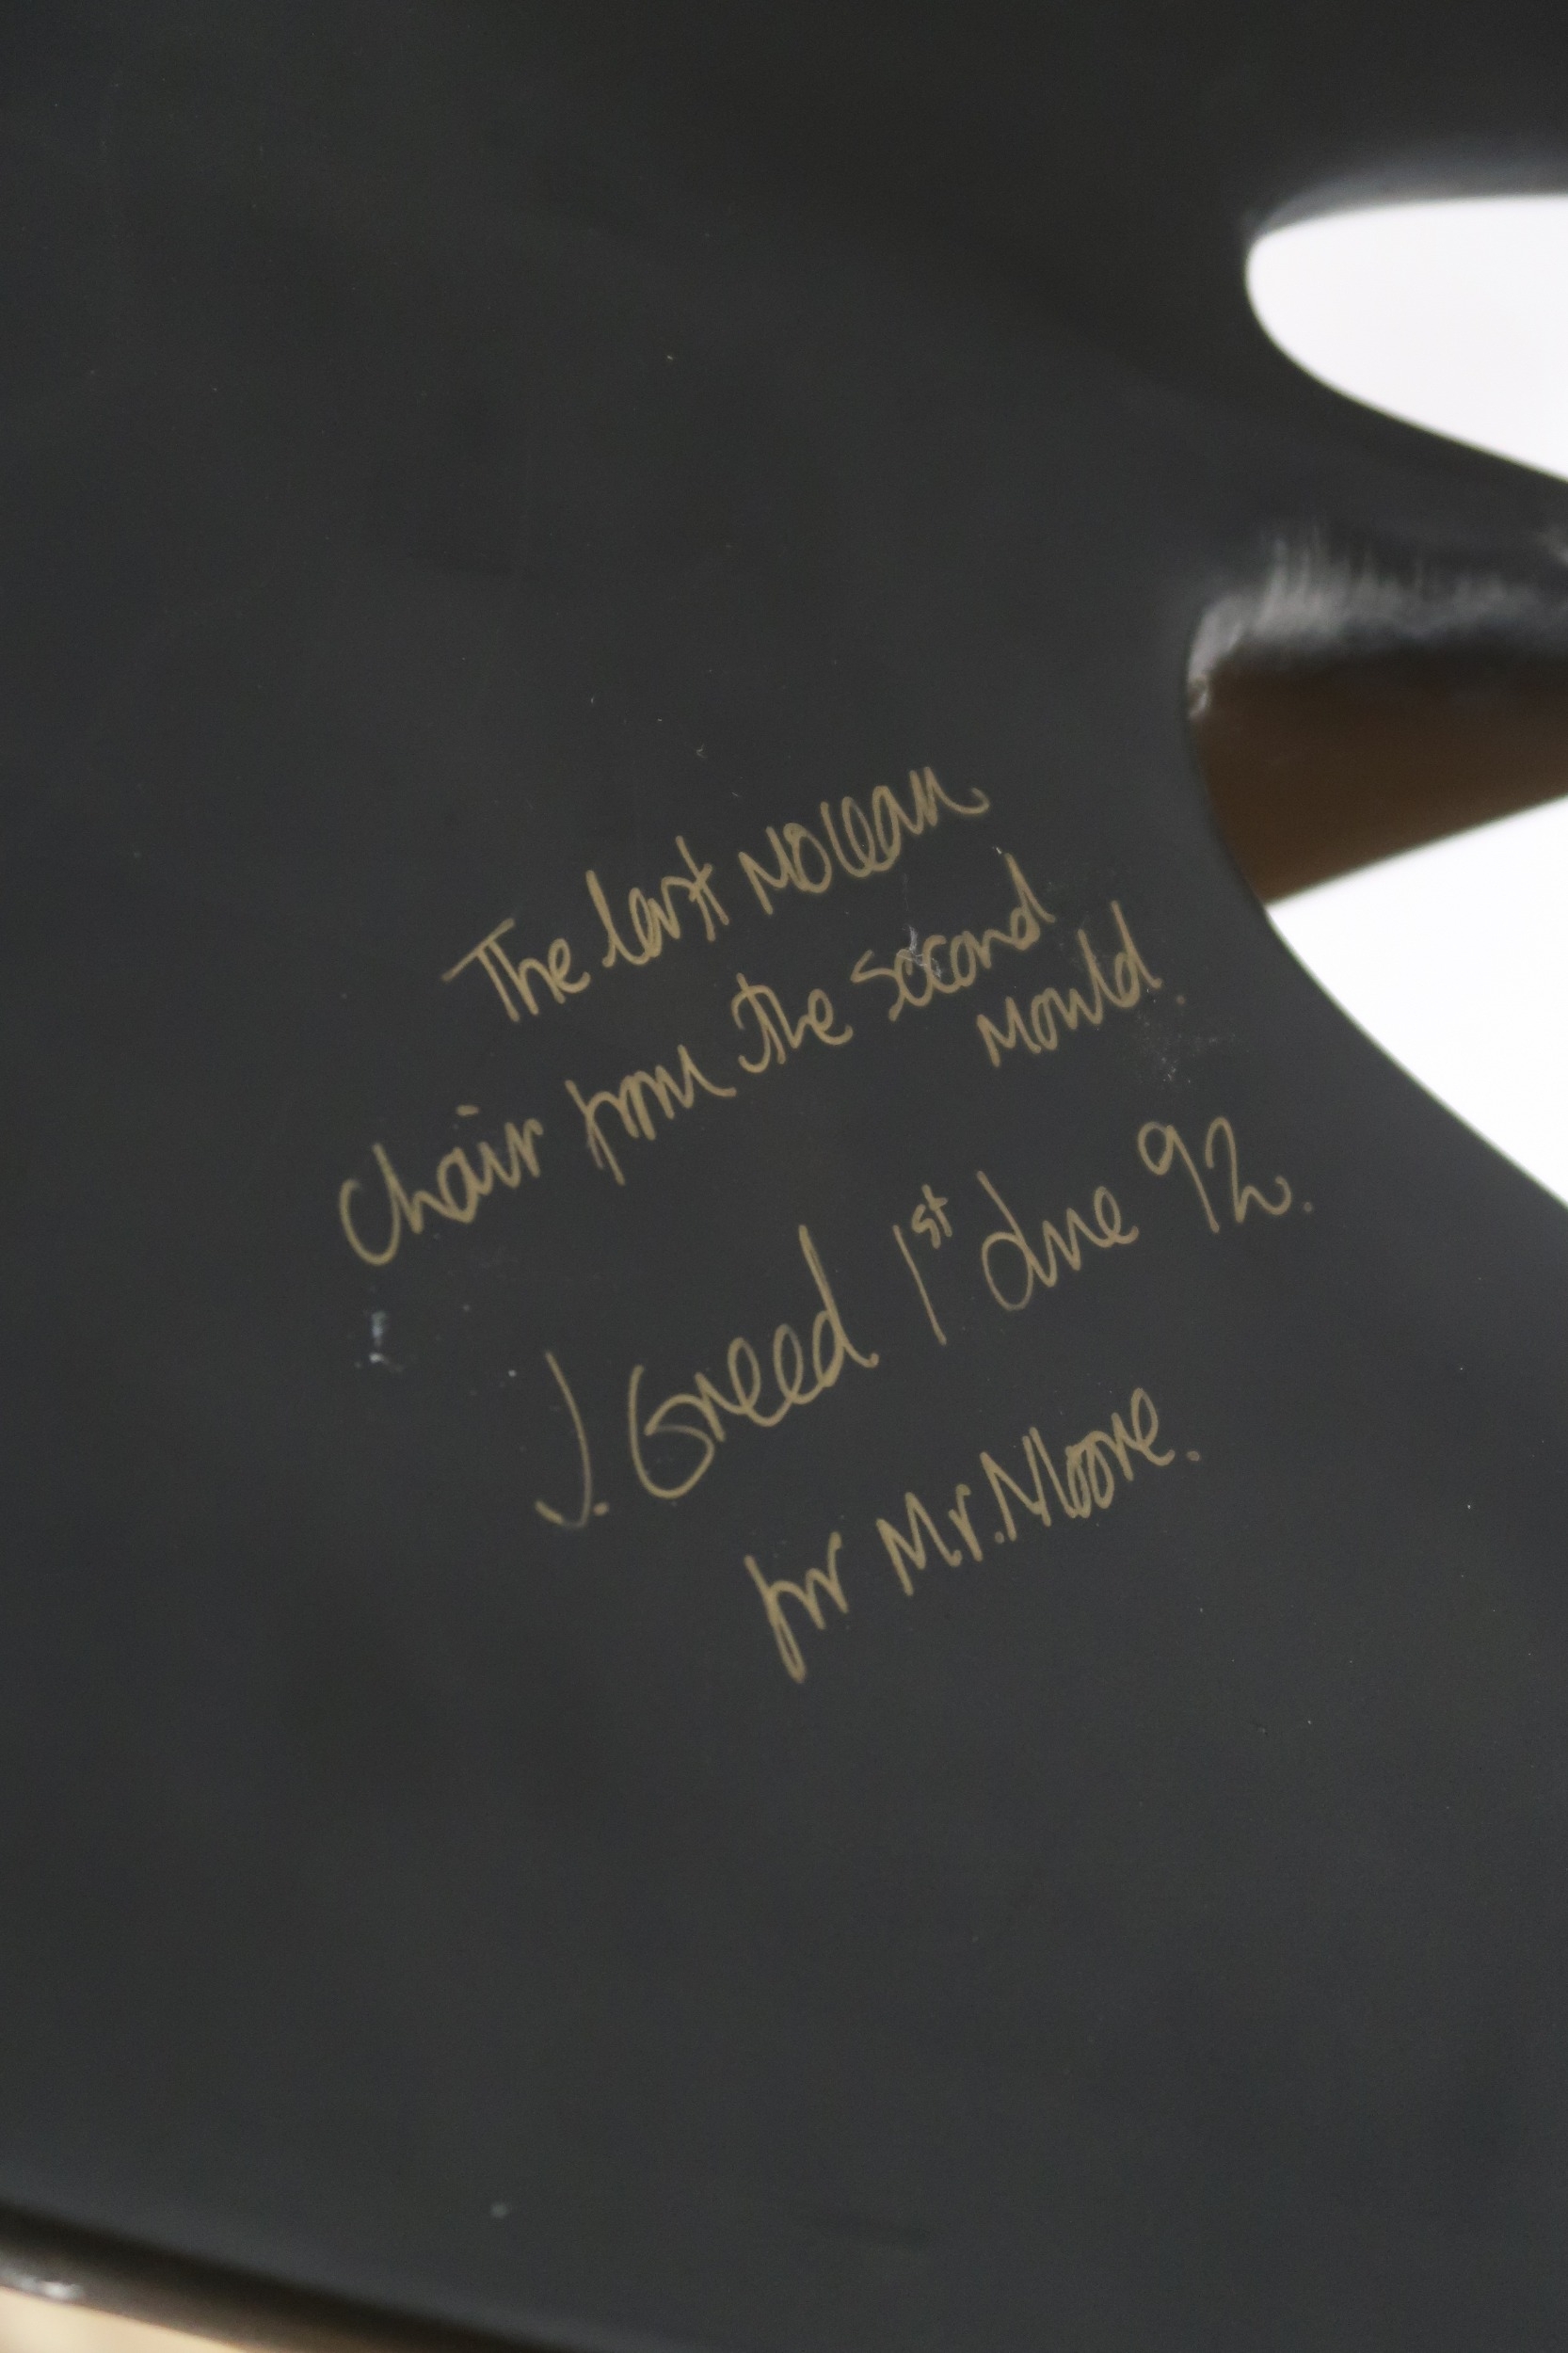 The last
Chair from the second
Mould.
J. Greed 1st June 92.
for Mr. Moore.